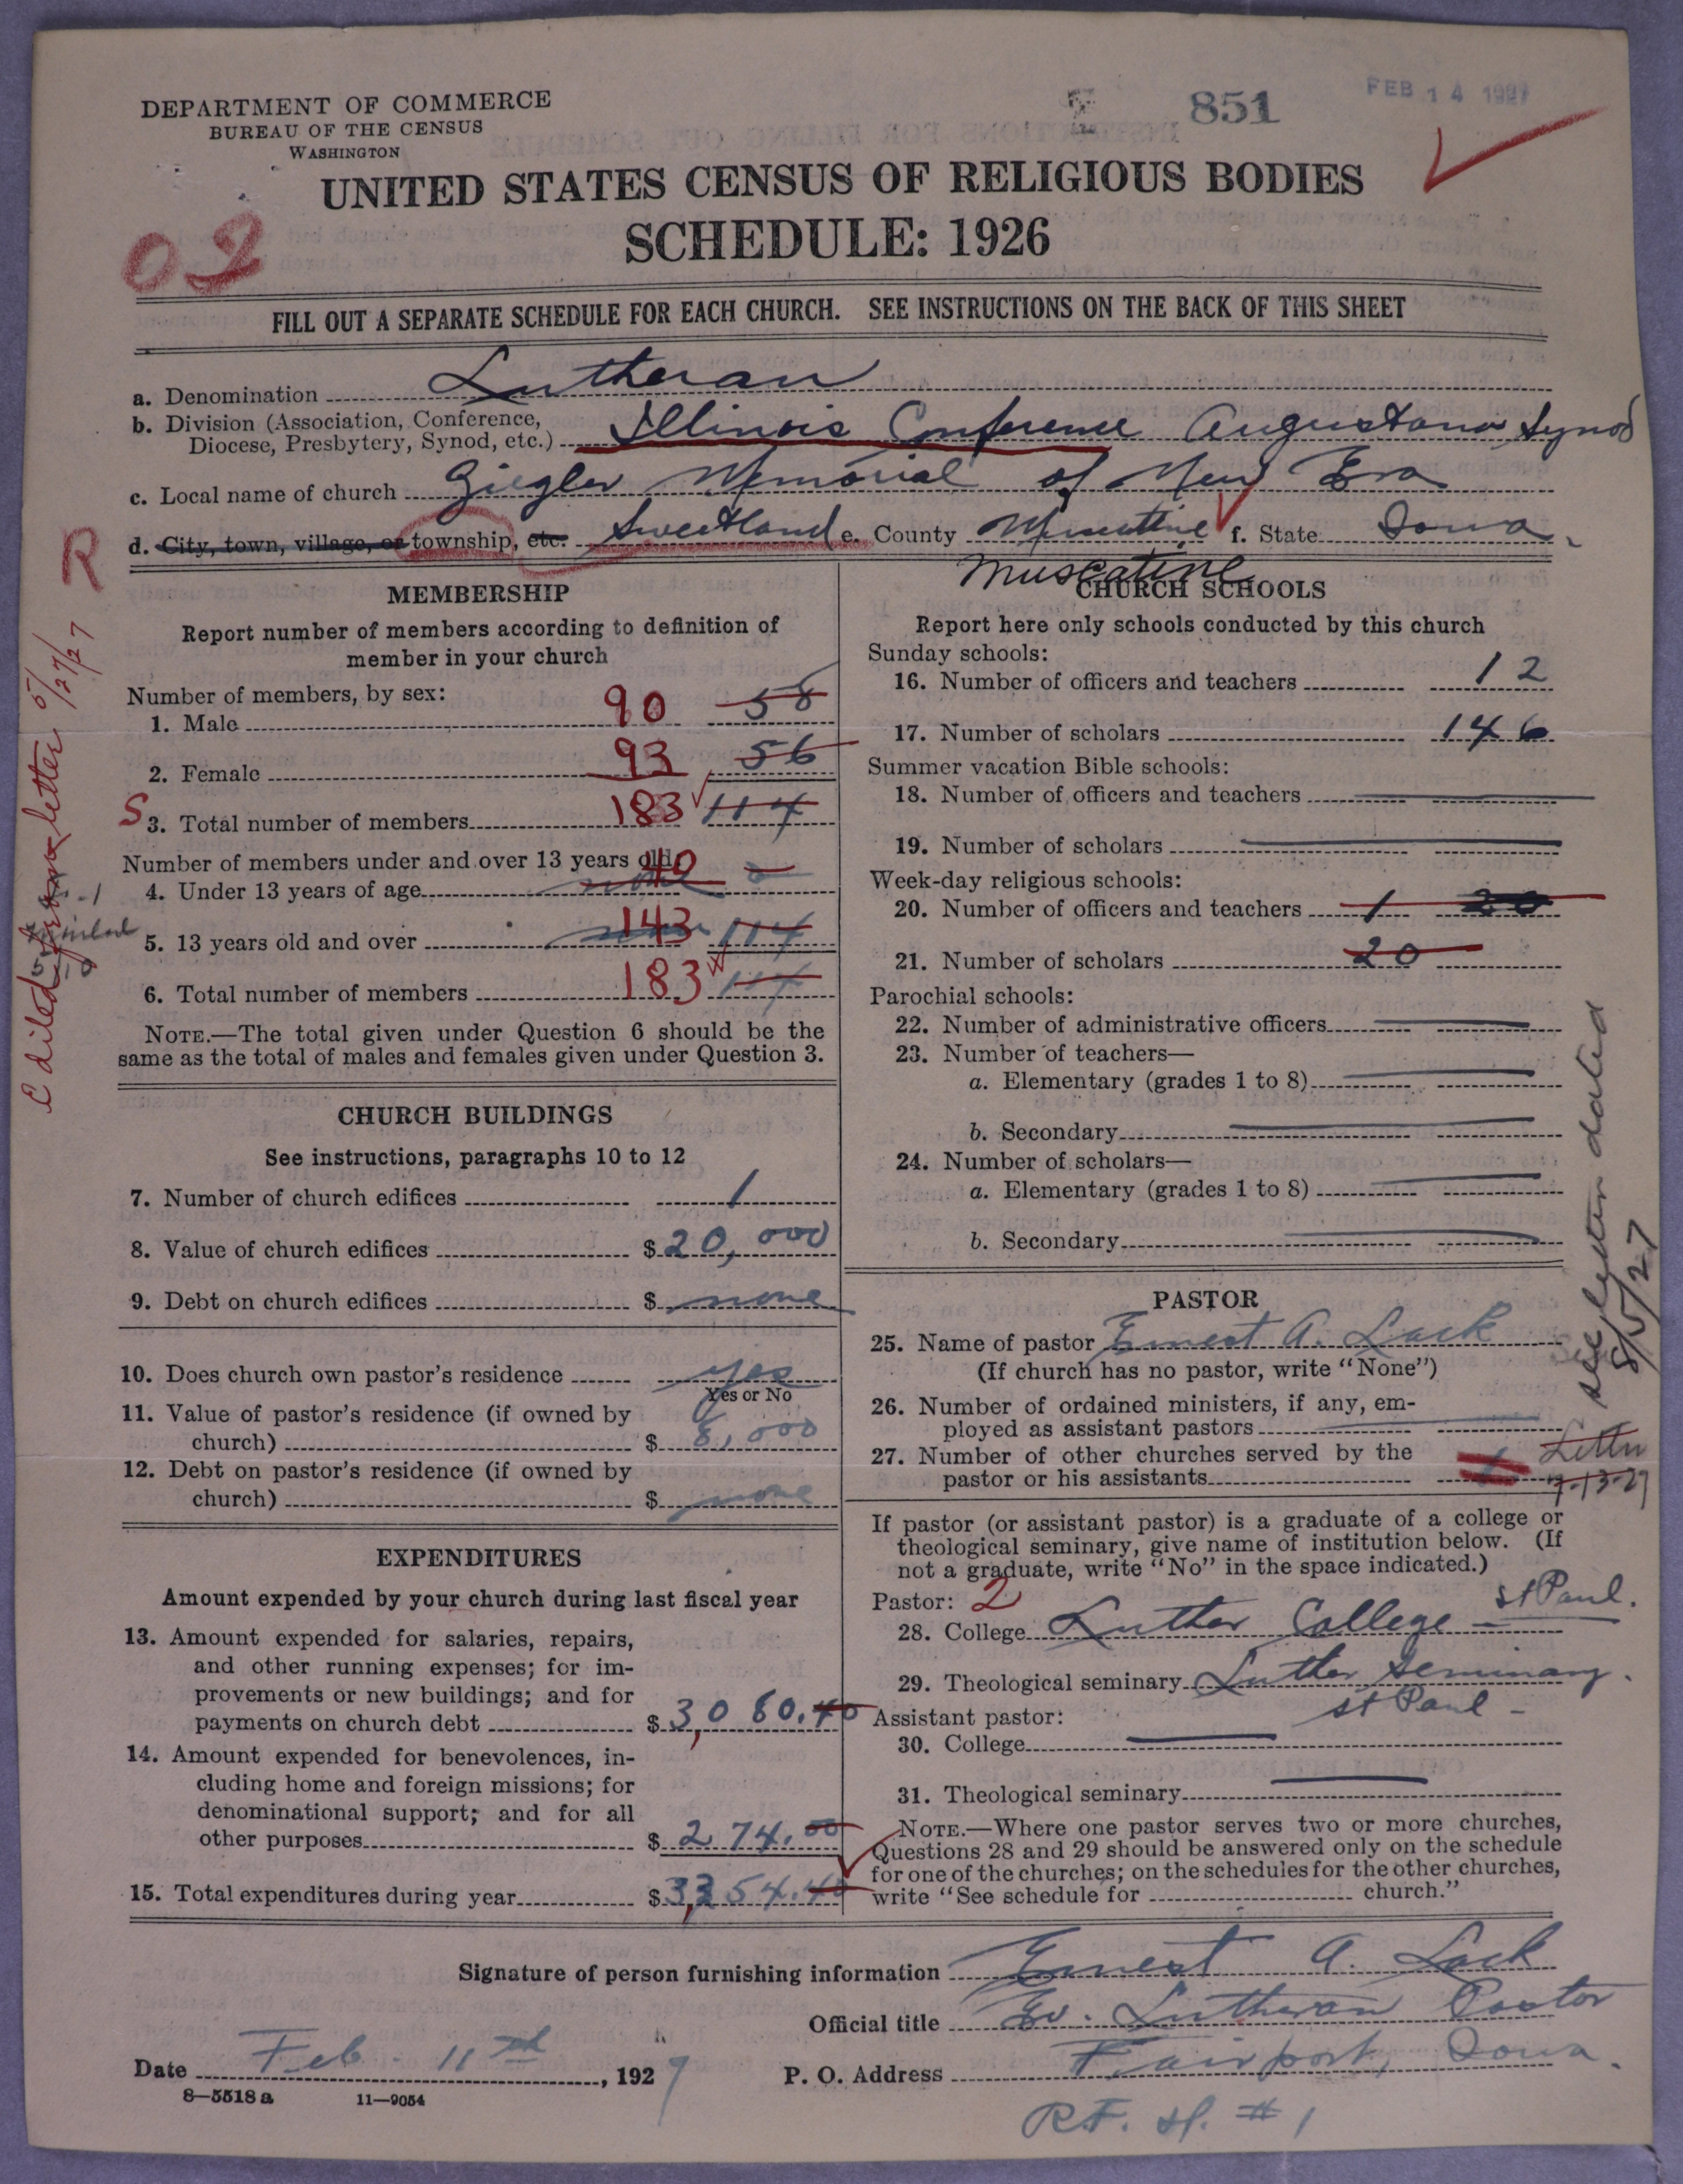 DEPARTMENT OF COMMERCE
BUREAU OF THE CENSUS
WASHINGTON
851
FEB 14 1927
UNITED STATES CENSUS OF RELIGIOUS BODIES
SCHEDULE: 1926
02
FILL OUT A SEPARATE SCHEDULE FOR EACH CHURCH. SEE INSTRUCTIONS ON THE BACK OF THIS SHEET
a. Denomination Lutheran
b. Division (Association, Conference,
Diocese, Presbytery, Synod, etc.) Illinois Conference Augustana Synod
c. Local name of church Ziegler Memorial of New Era
d. City, town, village, or township, etc. Sweetland e. County Muscatine f. State Iowa.
Muscatine
R
MEMBERSHIP
Report number of members according to definition of
member in your church
Number of members, by sex:
1. Male 90 58
2. Female 93 56
S 3. Total number of members 183 114
Number of members under and over 13 years old:
4. Under 13 years of age 40 none
5. 13 years old and over 143 114
6. Total number of members 183 114
NOTE.—The total given under Question 6 should be the
same as the total of males and females given under Question 3.
letter 5/27/27
CHURCH BUILDINGS
See instructions, paragraphs 10 to 12
7. Number of church edifices 1
8. Value of church edifices $ 20,000
9. Debt on church edifices $ none
10. Does church own pastor's residence yes
Yes or No
11. Value of pastor's residence (if owned by
church) $ 8,000
12. Debt on pastor's residence (if owned by
church) $ none
EXPENDITURES
Amount expended by your church during last fiscal year
13. Amount expended for salaries, repairs,
and other running expenses; for im-
provements or new buildings; and for
payments on church debt $ 3,080.40
14. Amount expended for benevolences, in-
cluding home and foreign missions; for
denominational support; and for all
other purposes $ 274.00
15. Total expenditures during year $ 3,354.40
CHURCH SCHOOLS
Report here only schools conducted by this church
Sunday schools:
16. Number of officers and teachers 12
17. Number of scholars 146
Summer vacation Bible schools:
18. Number of officers and teachers
19. Number of scholars
Week-day religious schools:
20. Number of officers and teachers 1 20
21. Number of scholars 20
Parochial schools:
22. Number of administrative officers
23. Number of teachers—
a. Elementary (grades 1 to 8)
b. Secondary
24. Number of scholars—
a. Elementary (grades 1 to 8)
b. Secondary
PASTOR
25. Name of pastor Ernest A. Lack
(If church has no pastor, write "None")
26. Number of ordained ministers, if any, em-
ployed as assistant pastors
27. Number of other churches served by the
pastor or his assistants
Letter
7-13-27
see letter dated
8/5/27
If pastor (or assistant pastor) is a graduate of a college or
theological seminary, give name of institution below. (If
not a graduate, write "No" in the space indicated.)
Pastor: 2
28. College Luther College - St Paul.
29. Theological seminary Luther Seminary.
St Paul -
Assistant pastor:
30. College
31. Theological seminary
NOTE.—Where one pastor serves two or more churches,
Questions 28 and 29 should be answered only on the schedule
for one of the churches; on the schedules for the other churches,
write "See schedule for church."
Signature of person furnishing information Ernest A. Lack
Official title Ev. Lutheran Pastor
Date Feb. 11th, 1927
P. O. Address Fairport, Iowa.
R.F.D. # 1
8—5518a 11—9054